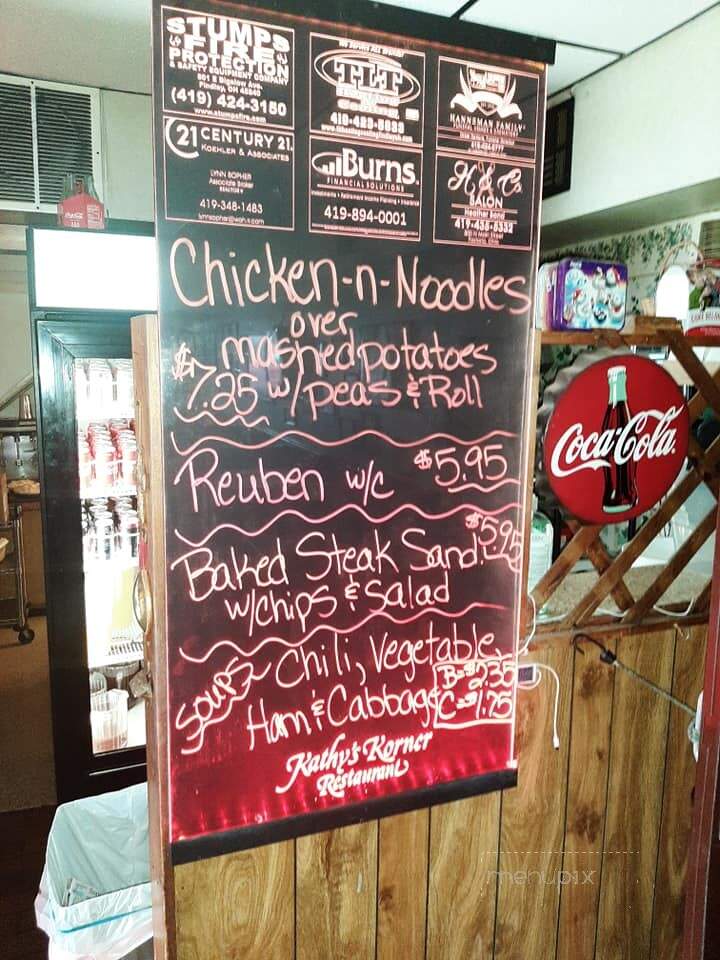 STUMPS
FIRE
PROTECTION
& SAFETY EQUIPMENT COMPANY
Findlay, OH 45840
(419) 424-3150
www.stumpsfire.com
We Service ALL Brands!
TLT
HANNEMAN FAMILY
21 CENTURY 21.
KOEHLER & ASSOCIATES
LYNN BOPHER
Associate Broker
REALTOR
419-348-1483
Burns
FINANCIAL SOLUTIONS
419-894-0001
H & Co
SALON
Heather Bond
Coca-Cola
Chicken-n-Noodles
over
mashed potatoes
$7.25 w/peas & Roll
Reuben w/c $5.95
Baked Steak Sand. $5.95
w/chips & Salad
Soups Chili, Vegetable,
Ham & Cabbage
B=$2.35
C=$1.75
Kathy's Korner
Restaurant
Coca-Cola
menupix